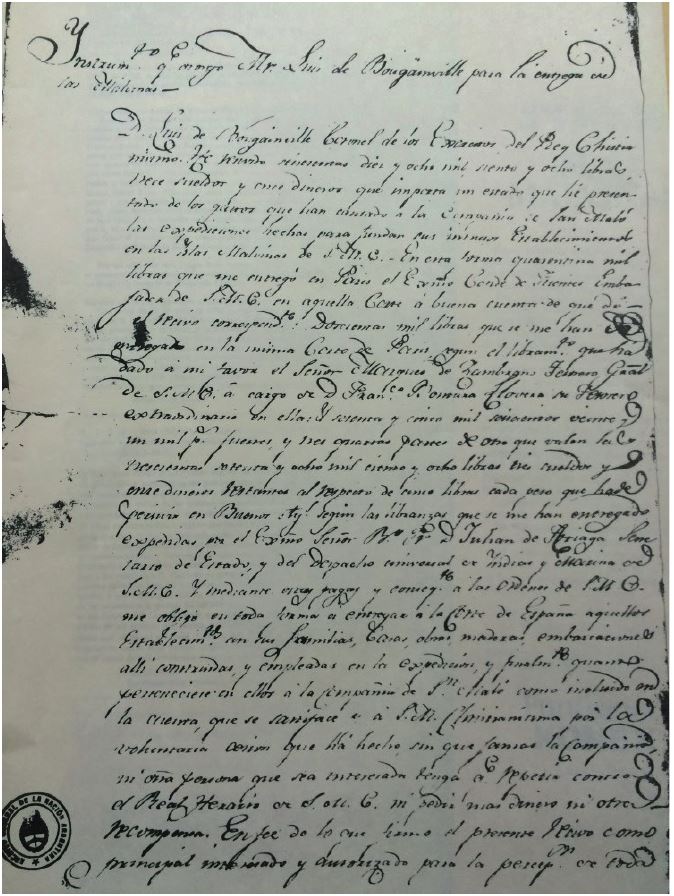 Instrum.to q.e otorgó Mr. Luis de Bougainville para la entrega de
las Malvinas —
D. Luis de Bougainville Coronel de los Exercitos del Rey Christia
nisimo. He recivido seiscientas diez y ocho mil siento y ocho libras,
trece sueldos y once dineros que importa un estado que hé presen-
tado de los gastos que han causado á la Compañia de San Maló
las expediciones hechas para fundar sus intrusos Establecimientos
en las Islas Malvinas de S.M.C. - En esta forma quarenta mil
libras que me entregó en Paris el Exmo Conde de Fuentes Emba-
jador de S.M.C. en aquella Corte á buena cuenta de que dí
el recivo correspond.te: Doscientas mil libras que se me han de
entregar en la misma Corte de Paris, segun el libram.to que ha
dado á mi favor el Señor Marques de Zambrano Tesorero Gral
de S.M.C. á cargo de D. Fran.co Ventura Llovera su Tesorero
extraordinario en ella: Y setenta y cinco mil seiscientos veinte y
un mil p.s fuertes, y tres quartas partes de otro que valen las
trescientas setenta y ocho mil ciento y ocho libras tres sueldos y
once dineros restantes al respecto de cinco libras cada peso que he de
percivir en Buenos Ay.s según las libranzas que se me han entregado
expedidas por el Exmo Señor B.o Fr. D. Julian de Arriaga Secre
tario de Estado, y del Despacho universal de Yndias y Marina de
S.M.C. Y mediante estos pagos y conseq.te á las Ordenes de S.M.C.
me obligo en toda forma á entregar á la Corte de España aquellos
Establecim.tos con sus familias, Casas, obras maderas, embarcaciones
allí construidas, y empleadas en la expedicion, y finalm.te quanto
perteneciere en ellos á la Compañia de S.n Maló como incluido en
la cuenta, que se satisface á S.M. Christianisima por la
voluntaria cesion que há hecho, sin que jamas la Compañia,
ni otra persona que sea interesada tenga q.e repetir contra
el Real Herario de S.M.C. ni pedir mas dinero ni otra
recompensa. En fee de lo que firmo el presente recivo como
principal interesado y autorizado para la percip.on de toda
DE LA NACION ARGENTINA